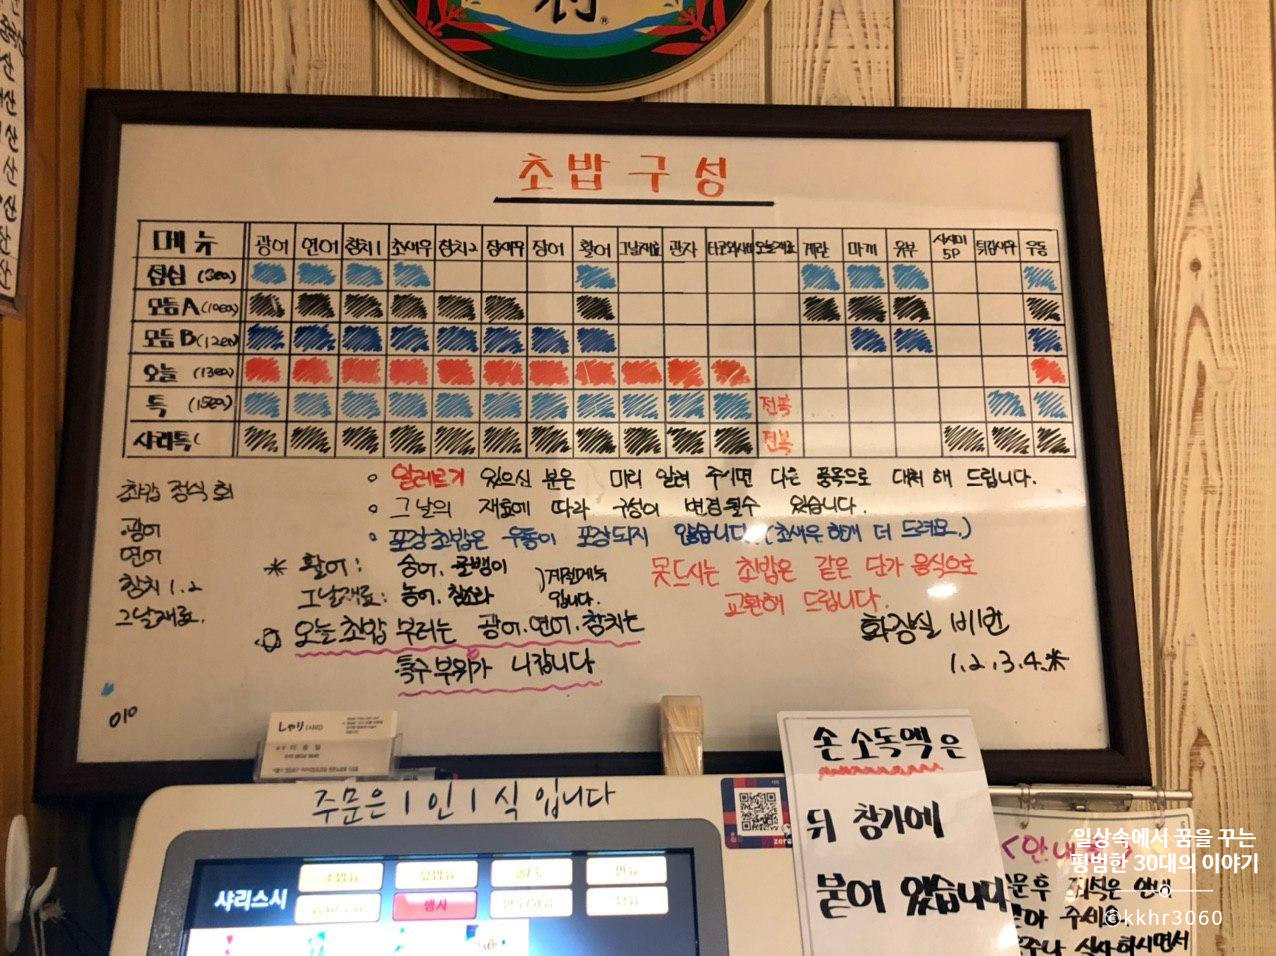 초밥 구성
메뉴 광어 연어 참치1 초새우 참치2 장새우 장어 활어 그날재료 관자 타코와사비 오늘재료 계란 마끼 유부 사시미 5P 튀김새우 우동
점심
모듬A (10ea)
모듬B (12ea)
오늘 (13ea)
특 (15ea) 전복
샤리특( 전복
알레르기 있으신 분은 미리 알려 주시면 다른 품목으로 대체 해 드립니다.
그날의 재료에 따라 구성이 변경될수 있습니다.
포장초밥은 우동이 포장되지 않습니다. (초새우 한개 더 드려요.)
초밥 정식 회
광어
연어
참치 1.2
그날재료.
* 활어: 숭어.
그날재료: 농어. 참소라
계절메뉴 입니다.
오늘초밥 부터는 광어.연어.참치는
특수부위가 나갑니다
못드시는 초밥은 같은 단가 음식으로
교환해 드립니다.
화장실 비번
1.2.3.4.*
010
しゃり
주문은 1인 1식 입니다
샤리스시
행사
손 소독액은
뒤 창가에
붙어 있습니다
일상속에서 꿈을 꾸는
평범한 30대의 이야기
©kkhr3060